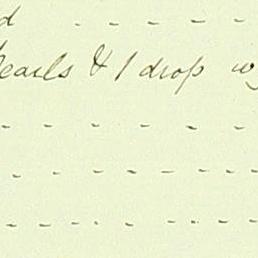 d - - - - -
Pearls & 1 drop w
- - - - - -
- - - - - - -
- - - - - - - -